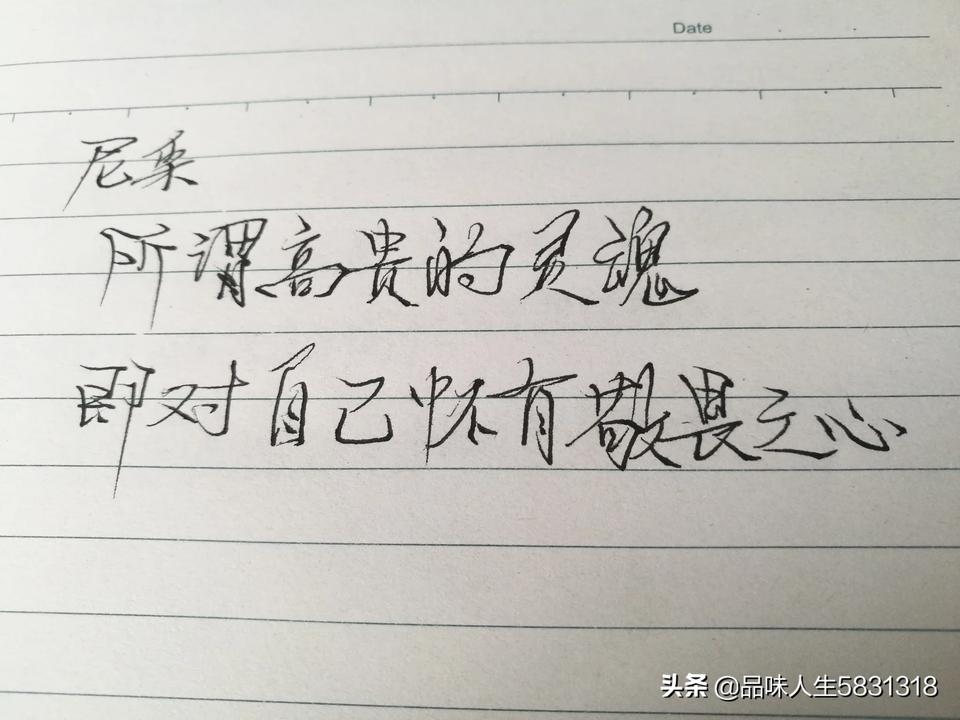 Date
尼采
所谓高贵的灵魂
即对自己怀有敬畏之心
头条 @品味人生5831318